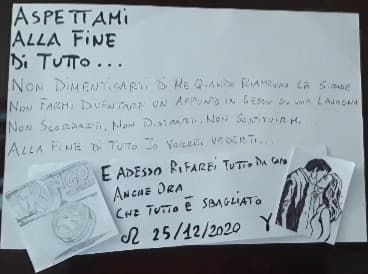 ASPETTAMI
ALLA FINE
DI TUTTO...
NON DIMENTICARTI DI ME QUANDO RIAPRONO LE STRADE
NON FARMI DIVENTARE UN APPUNTO IN GESSO SU UNA LAVAGNA
NON SCORDARTI, NON DISTRARTI, NON SOSTITUIRMI
ALLA FINE DI TUTTO IO VORREI VEDERTI...
E ADESSO RIFAREI TUTTO DA CAPO
ANCHE ORA
CHE TUTTO È SBAGLIATO
♌ 25/12/2020 ♈
RINGO